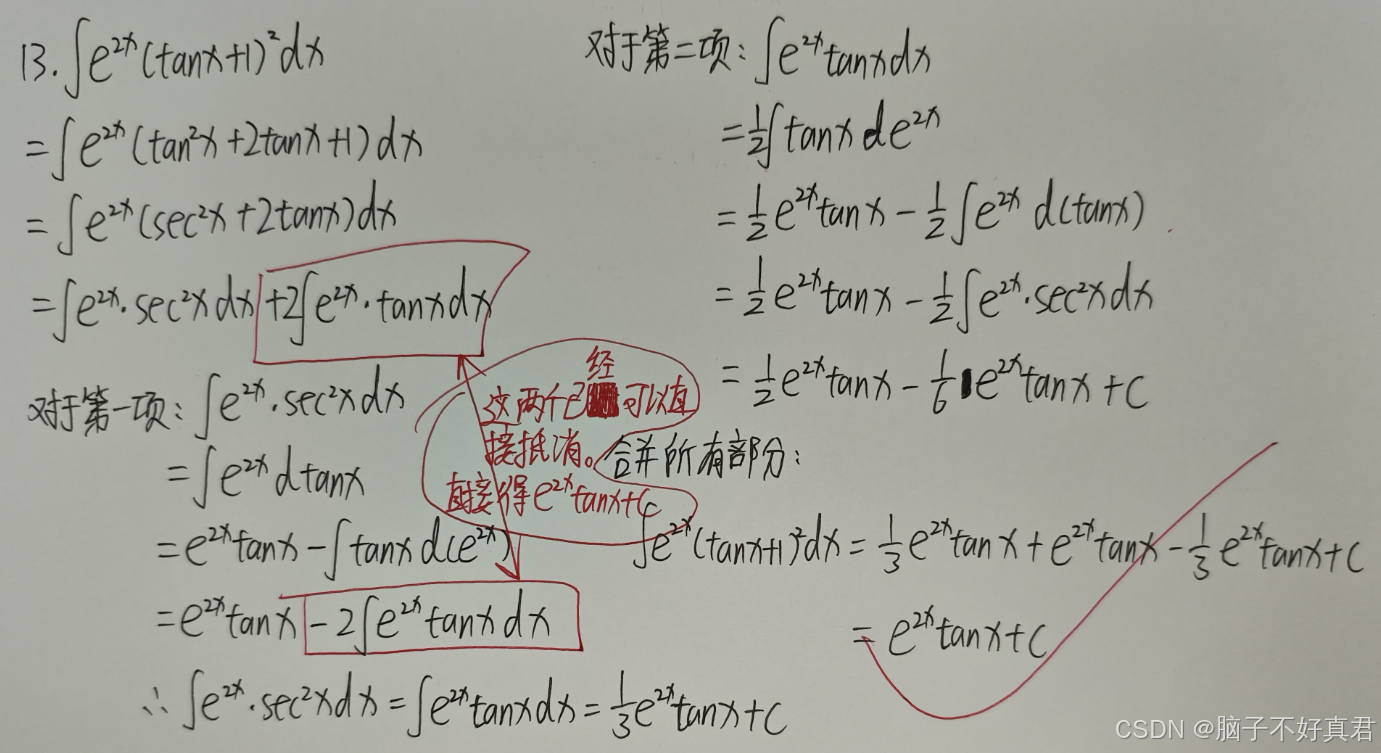 13. ∫e^{2x}(tanx+1)^2dx
=∫e^{2x}(tan^2x+2tanx+1)dx
=∫e^{2x}(sec^2x+2tanx)dx
=∫e^{2x}·sec^2xdx+2∫e^{2x}·tanxdx
对于第一项:∫e^{2x}·sec^2xdx
=∫e^{2x}dtanx
=e^{2x}tanx-∫tanxd(e^{2x})
=e^{2x}tanx-2∫e^{2x}tanxdx
∴∫e^{2x}·sec^2xdx=∫e^{2x}tanxdx=\frac{1}{3}e^{2x}tanx+C
这两个已经可以直
接抵消。
直接得e^{2x}tanx+C
对于第二项:∫e^{2x}tanxdx
=\frac{1}{2}∫tanxde^{2x}
=\frac{1}{2}e^{2x}tanx-\frac{1}{2}∫e^{2x}d(tanx)
=\frac{1}{2}e^{2x}tanx-\frac{1}{2}∫e^{2x}·sec^2xdx
=\frac{1}{2}e^{2x}tanx-\frac{1}{6}e^{2x}tanx+C
合并所有部分:
∫e^{2x}(tanx+1)^2dx=\frac{1}{3}e^{2x}tanx+e^{2x}tanx-\frac{1}{3}e^{2x}tanx+C
=e^{2x}tanx+C
CSDN @脑子不好真君